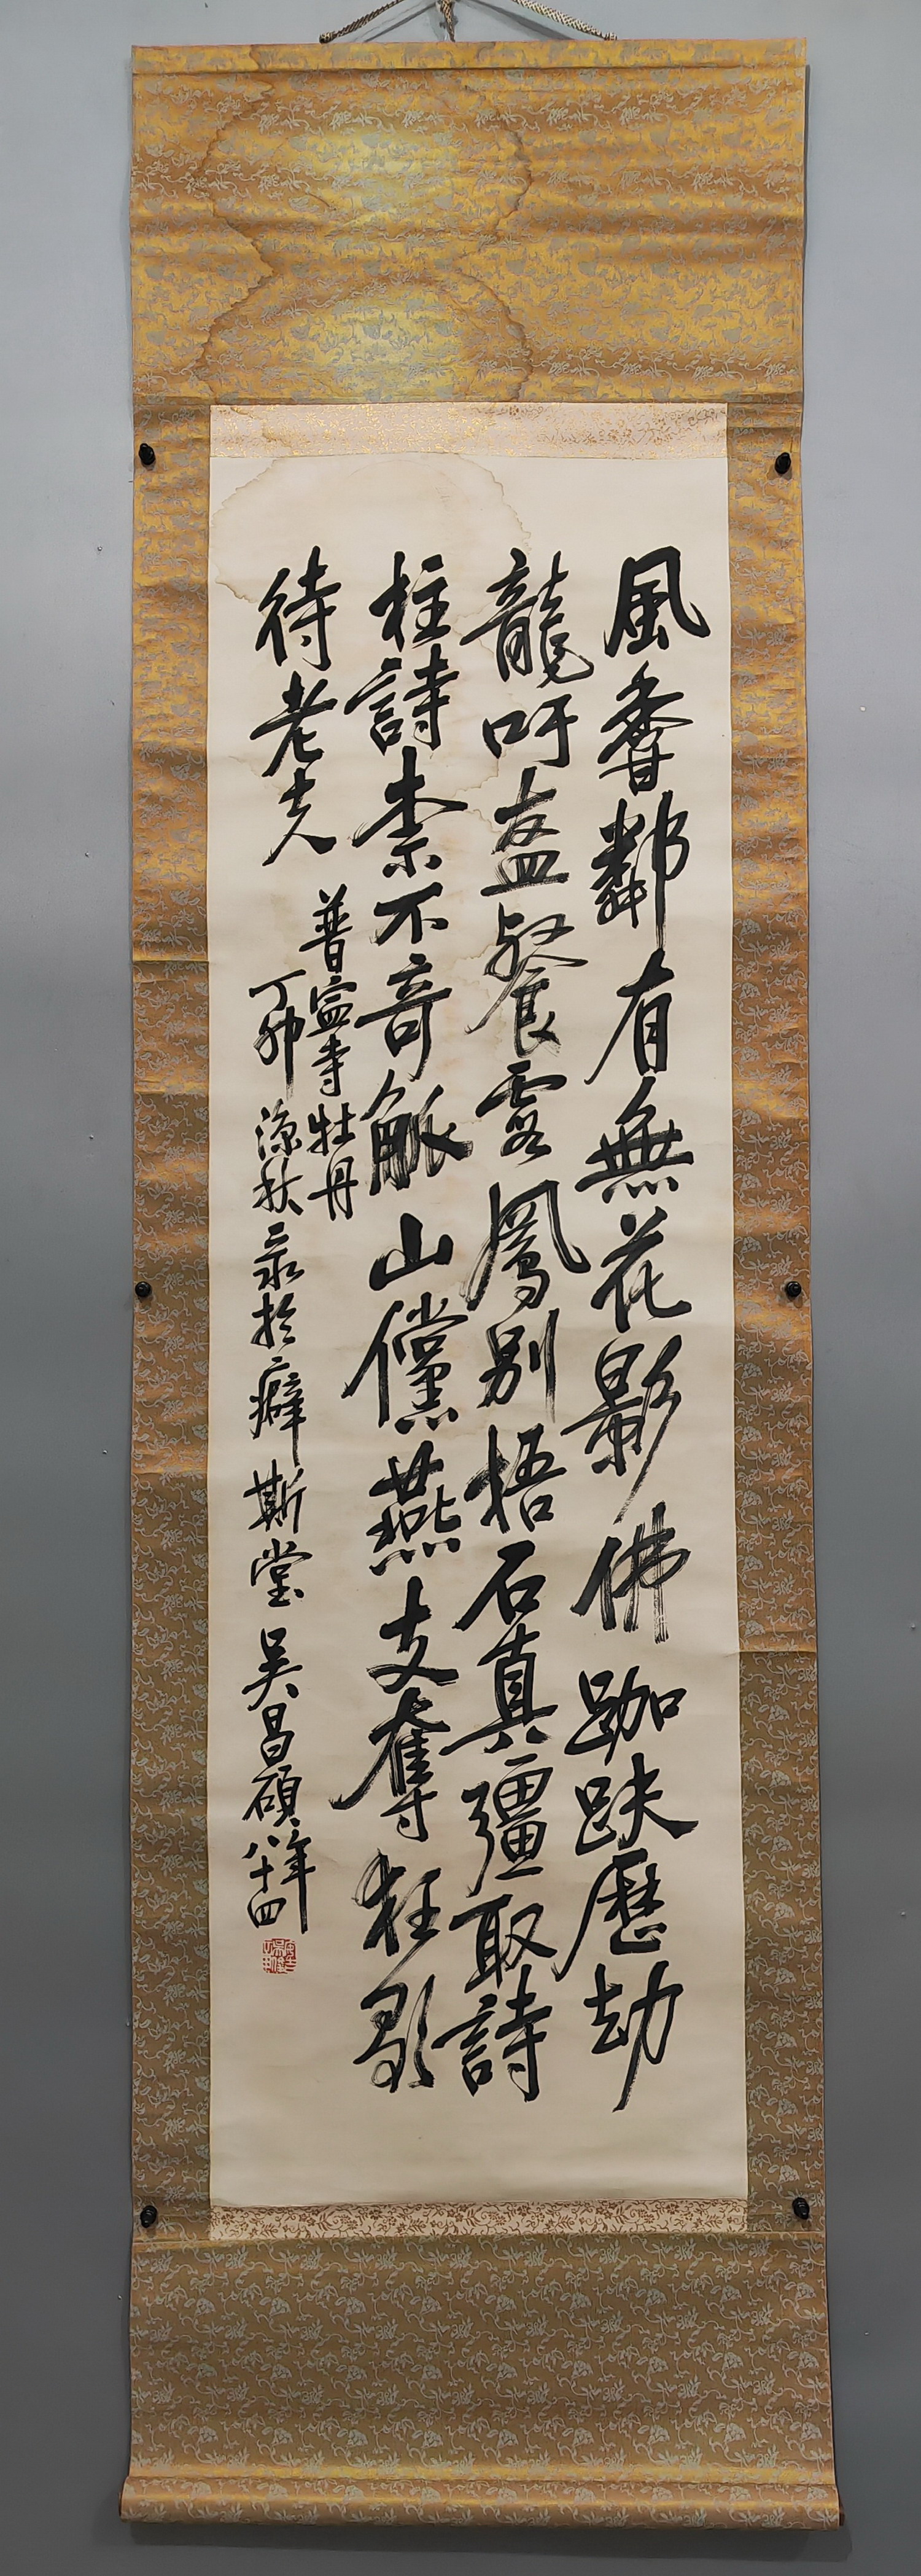 風香鄰有無花影佛跏趺歷劫
龍吁盋餐露鳳別梧石真疆取詩
柱詩柰不奇觚山儻燕支奪狂歌
待老夫
普寍寺牡丹
丁卯涼秋录於癖斯堂吳昌碩年八十四